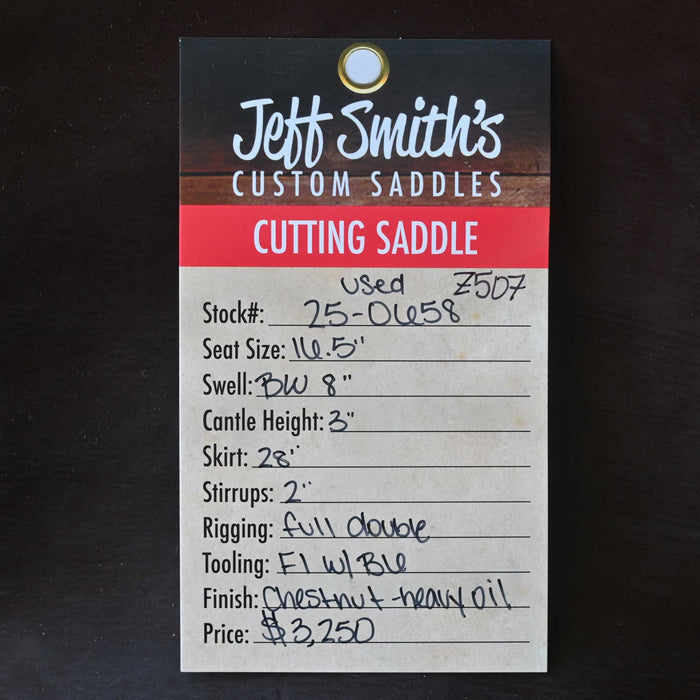 Jeff Smith's
CUSTOM SADDLES
CUTTING SADDLE
used Z507
Stock#: 25-0658
Seat Size: 16.5"
Swell: BW 8"
Cantle Height: 3"
Skirt: 28"
Stirrups: 2"
Rigging: full double
Tooling: F1 w/ B6
Finish: Chestnut-heavy oil
Price: $3,250